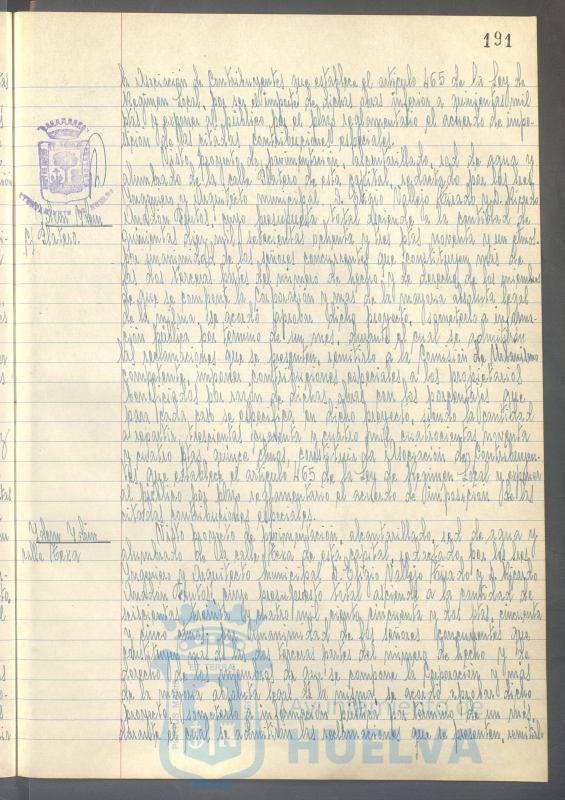 191
la Asociación de Contribuyentes que establece el artículo 465 de la Ley de
Régimen Local, por ser el importe de dichas obras inferior a quinientas mil
ptas y exponer al público por el plazo reglamentario el acuerdo de impo-
sición de las citadas contribuciones especiales.
Idem Idem
c/ Platero.
Visto proyecto de pavimentación, alcantarillado, red de agua y
alumbrado de la calle Platero de esta capital, redactado por los Sres.
Ingeniero y Arquitecto municipal, D. Eligio Vallejo Tirado y D. Ricardo
cuyo presupuesto total asciende a la cantidad de
quinientas diez mil setecientas ochenta y tres ptas noventa y un ctmos.
por unanimidad de los señores concurrentes que constituyen más de
las dos terceras partes del número de hecho y de derecho de los miembros
de que se compone la Corporación y más de la mayoría absoluta legal
de la misma, se acordó aprobar dicho proyecto, someterlo a informa-
ción pública por término de un mes, durante el cual se admitirán
las reclamaciones que se presenten, remitirlo a la Comisión de Urbanismo
competente, imponer contribuciones especiales a los propietarios
beneficiados por razón de dichas obras con los porcentajes que
para cada caso se especifica en dicho proyecto, siendo la cantidad
a repartir, trescientas y cuatro mil, cuatrocientas noventa
y cuatro ptas, quince ctmos, constituir la Asociación de Contribuyen-
tes que establece el artículo 465 de la Ley de Régimen Local y exponer
al público por plazo reglamentario el acuerdo de imposición de las
citadas contribuciones especiales.
Idem Idem
calle
Visto proyecto de pavimentación, alcantarillado, red de agua y
alumbrado de la calle de esta capital, redactado por los Sres.
Ingeniero y Arquitecto Municipal D. Eligio Vallejo Tirado y D. Ricardo
cuyo presupuesto total asciende a la cantidad de
y cuatro mil, ciento cincuenta y dos ptas, cincuenta
y cinco ctmos, por unanimidad de los señores concurrentes que
constituyen más de las dos terceras partes del número de hecho y de
derecho de los miembros de que se compone la Corporación y más
de la mayoría absoluta legal de la misma, se acordó aprobar dicho
proyecto, someterlo a información pública por término de un mes,
durante el cual se admitirán las reclamaciones que se presenten, remitirlo
Ayuntamiento de
HUELVA